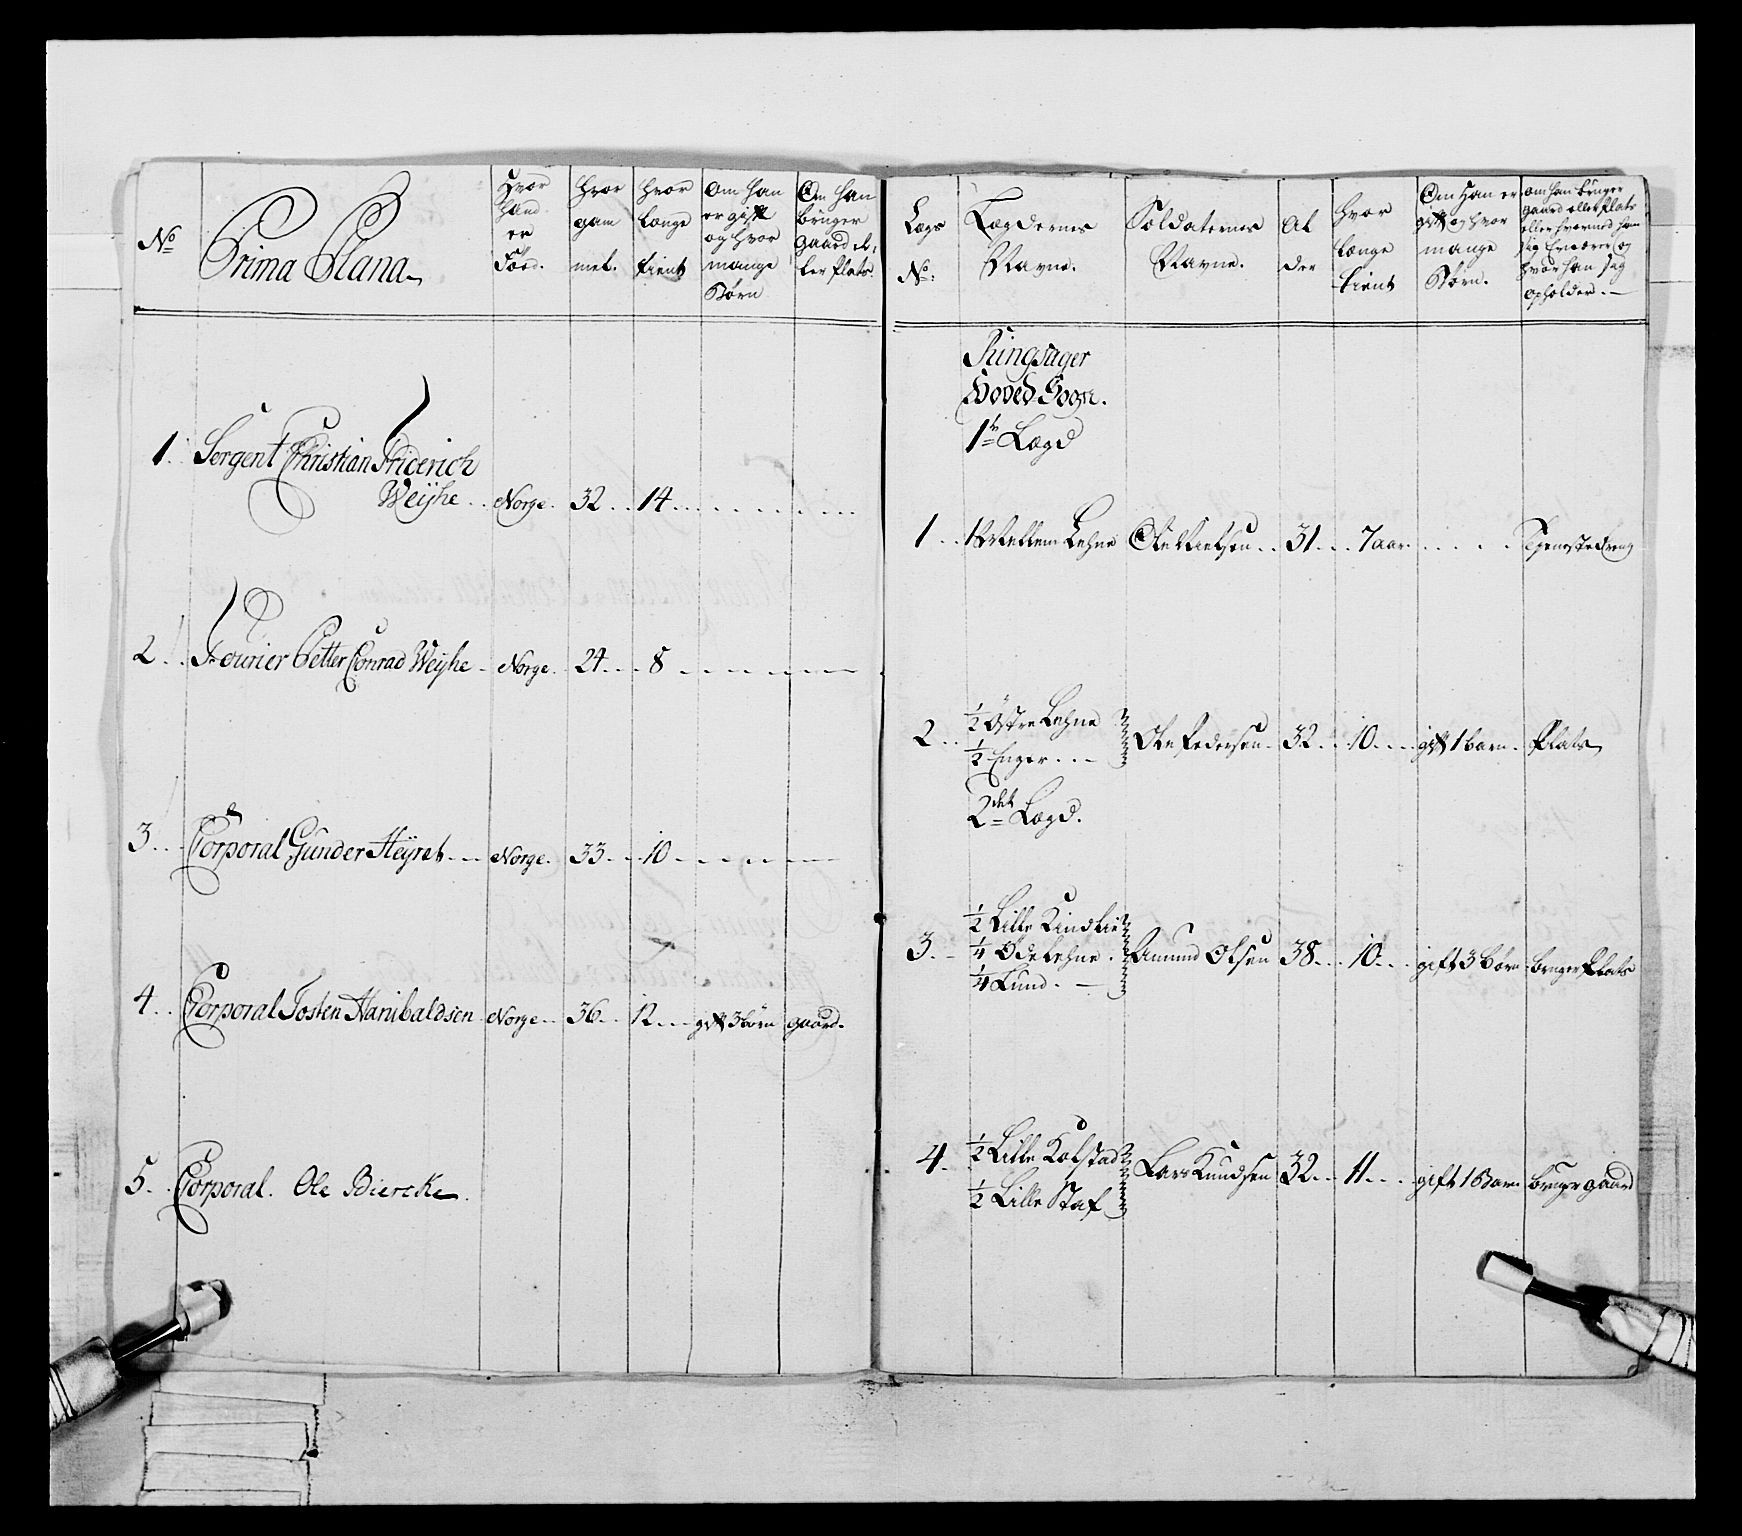 No
Prima Plana
Hvor
hand
er
Föed.
Hvor
gam
mel.
Hvor
længe
tient
Om han
er gift
og hvor
mange
Börn
Om han
brüger
gaard el-
ler Plats.
1. Sergent Christian Friderich
Weÿhe .. Norge. 32 .. 14
2 .. Fourier Petter Conrad Weÿhe - Norge. 24 .. 8
3 .. Corporal Gunder Heÿret .. Norge. 33 .. 10
4 .. Corporal Tosten Hanibaldsen Norge .. 36 .. 12 .. gift 3 börn gaard.
5 .. Corporal. Ole Biercke.
Lægs
No:
Lægdernes
Navne.
Soldaternes
Navne.
Al
der
Hvor
længe
tient
Om Han er
gift og hvor
mange
Börn.
Om han brüger
gaard eller Plats
eller hvormed han
sig Ernærer og
hvor han sig
opholder.
Ringsager
Hoved Sogn.
1te Lægd
1 .. 1 Mellem Lehne Ole Nielsen .. 31 .. 7 aar. Tjenestedreng
2 .. 1/2 Östre Lehne
1/2 Enger ... Ole Pedersen - 32 .. 10 ... gift 1 barn. Plats
2det Lægd.
3. 1/2 Lille Kindlie
1/4 Ödelehne. Amund Olsen 38 .. 10 .. gift 3 Börn bruger Plats
1/4 Lund.
4. 1/2 Lille Kolstad
Lars Knudsen 32 .. 11 ... gift 1 Barn bruger gaard
1/2 Lille Staf